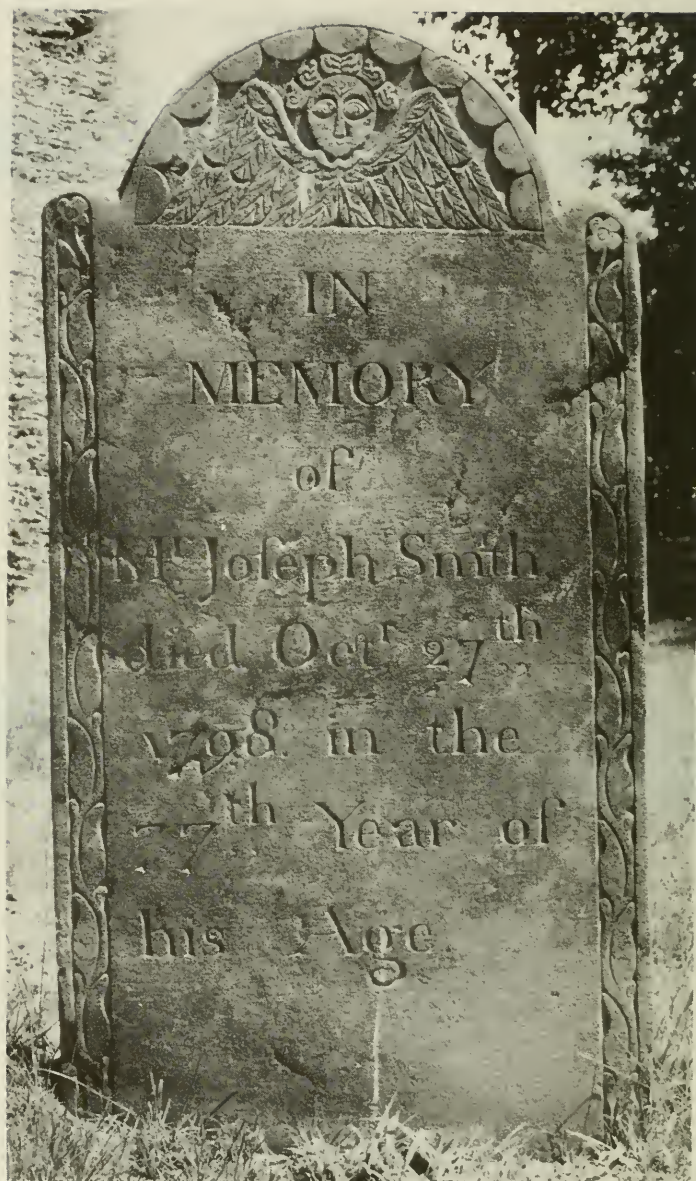 IN
MEMORY
of
Mr Joſeph Smith
died Octr 27th
1798 in the
77th Year of
his Age.